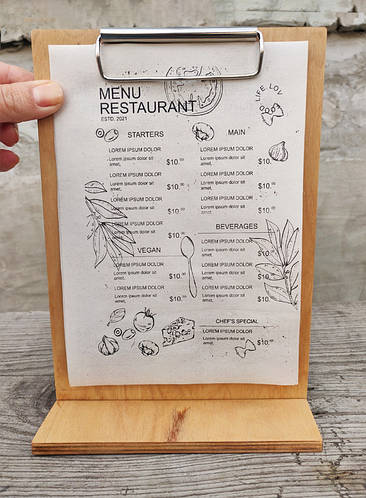 MENU
RESTAURANT
ESTD. 2021
LIFE, LOV
STARTERS
LOREM IPSUM DOLOR
Lorem ipsum dolor sit
amet,
$10.00
LOREM IPSUM DOLOR
Lorem ipsum dolor sit
amet,
$10.00
LOREM IPSUM DOLOR
Lorem ipsum dolor sit
amet,
$10.00
LOREM IPSUM DOLOR
Lorem ipsum dolor sit
amet,
$10.00
VEGAN
LOREM IPSUM DOLOR
Lorem ipsum dolor sit
amet,
$10.00
LOREM IPSUM DOLOR
Lorem ipsum dolor sit
amet,
$10.00
MAIN
LOREM IPSUM DOLOR
Lorem ipsum dolor sit
amet,
$10.00
LOREM IPSUM DOLOR
Lorem ipsum dolor sit
amet,
$10.00
LOREM IPSUM DOLOR
Lorem ipsum dolor sit
amet,
$10.00
BEVERAGES
LOREM IPSUM DOLOR
Lorem ipsum dolor sit
amet,
$10.00
LOREM IPSUM DOLOR
Lorem ipsum dolor sit
amet,
$10.00
LOREM IPSUM DOLOR
Lorem ipsum dolor sit
amet,
$10.00
CHEF'S SPECIAL
LOREM IPSUM DOLOR
Lorem ipsum dolor sit
amet,
$10.00